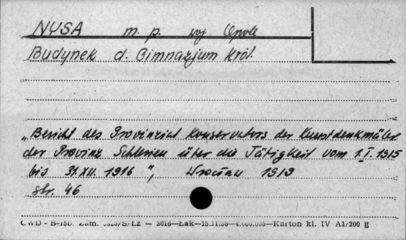 NYSA m. p. woj Opole
Budynek d. Gimnazjum Król.
„Bericht des Provinzial Konservators der Kunstdenkmäler
der Provinz Schlesien über die Tätigkeit vom 1.I.1915
bis 31.XII. 1916 ", Wrocław 1919
str. 46
CWD - B-150. Zam. S/Łz — 2016—Łak—15.11.56—4.000.000—Karton kl. IV A1/200 g